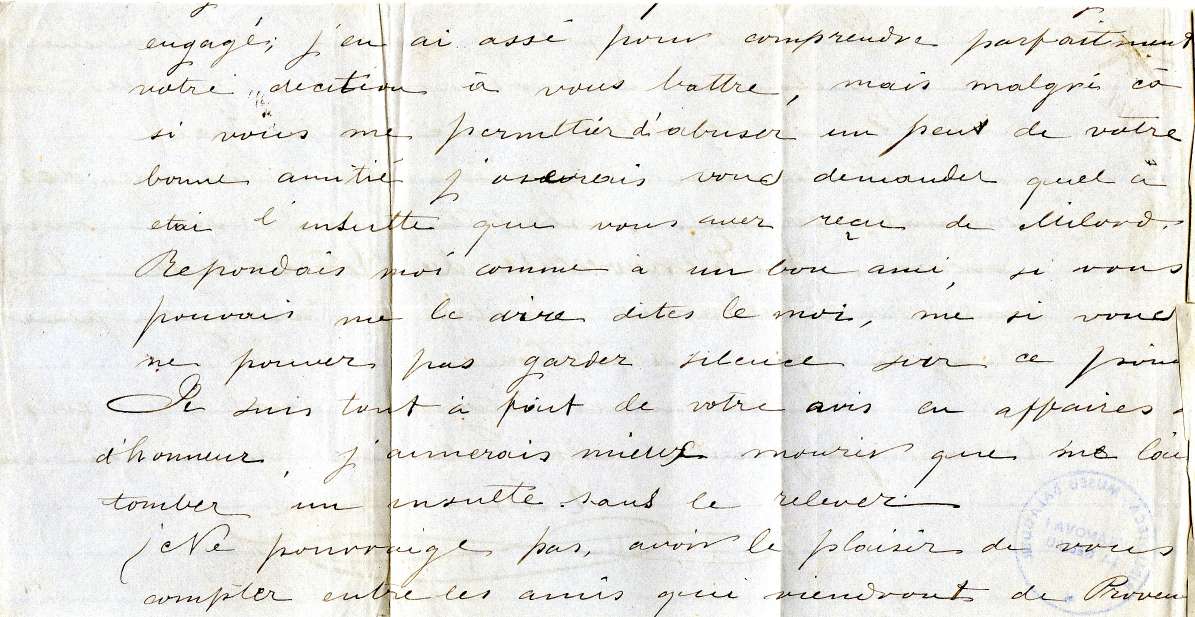 engagé; j'en ai assé pour comprendre parfaitment
votre decition à vous battre, mais malgré cà
si vous me permttiér d'abuser un peut de votre
bonne amitié j'oserais vous demander quel à
etai l'insultte que vous aver reçu de Milord.
Repondais moi comme a un bon ami si vous
pouvais me le dire dites le moi, me si vous
ne pouver pas garder silence sur ce poin
Je suis tout à fait de votre avis en affaires
d'honneur, j'aimerais mieux mourir que me lai
tomber un insulte sans le relever.
Ne pouvraige pas, avoir le plaisir de vous
compter entre les amis qui viendront de Proven